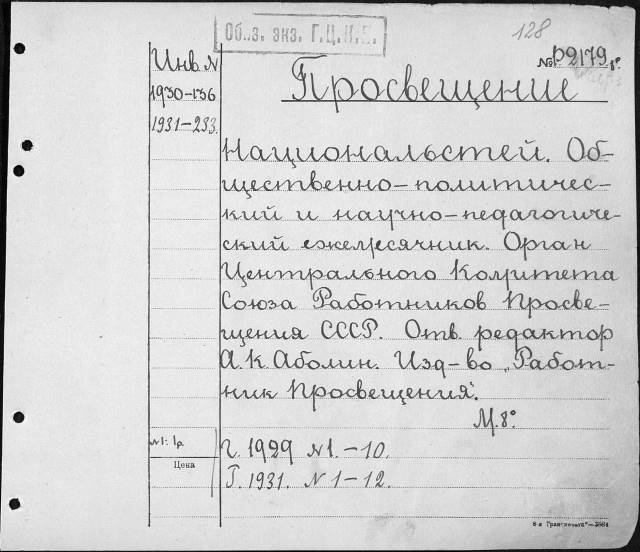 Об.з. экз. Г.Ц.К.П.
128
Инв. N
1930-136
1931-233.
№ Р2179 8°
Просвещение
Национальстей. Об-
щественно-политичес-
кий и научно-педагогиче-
ский ежемесячник. Орган
Центрального Комитета
Союза Работников Просве-
щения СССР. Отв. редактор
А. К. Аболин. Изд-во „Работ-
ник Просвещения".
М. 8°
№1: 1р.
Цена
Г. 1929 N 1.-10.
Г. 1931. N 1-12.